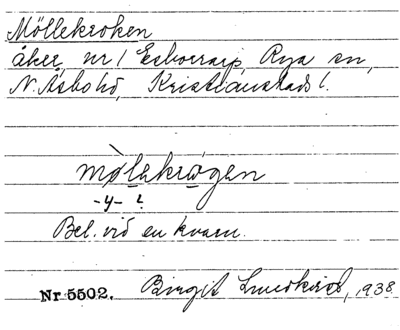 Möllekroken
åker, nr 1 Esborrarp, Rya sn,
N. Åsbo hd, Kristianstads l.
mø̀lekrøgen
-y- ?
Bel. vid en kvarn.
Nr 5502. Birgit 1938